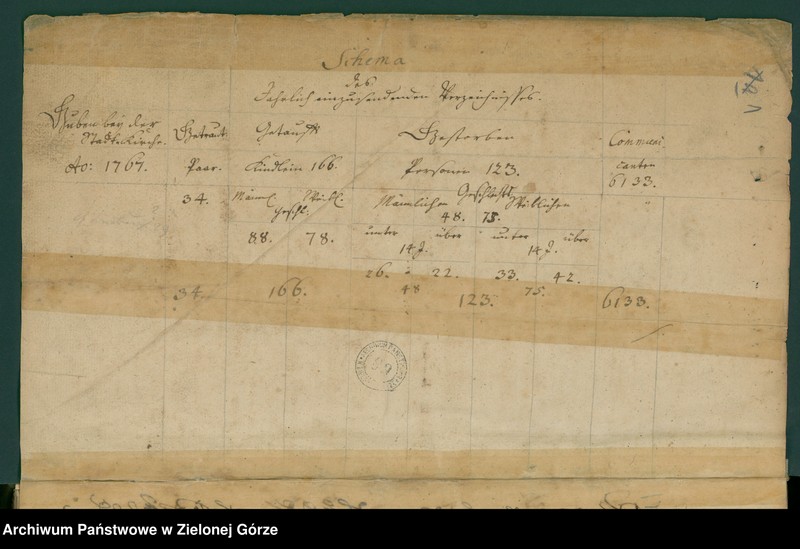 Schema
des
Jährlich einzusendenden Verzeichnißes.
Guben bey der
Stadt Kirche.
Ao: 1767.
Getraut
Paar.
34.
34.
Getauft
Kindlein 166.
Männl. Weibl.
Geschl:
88. 78.
166.
Gestorben
Personen 123.
Geschlechts
Männlichen Weiblichen
48. 75.
unter über unter über
14 J. 14 J.
26. 22. 33. 42.
48 75.
123.
Communi
canten
6133.
6133.
Archiwum Państwowe w Zielonej Górze